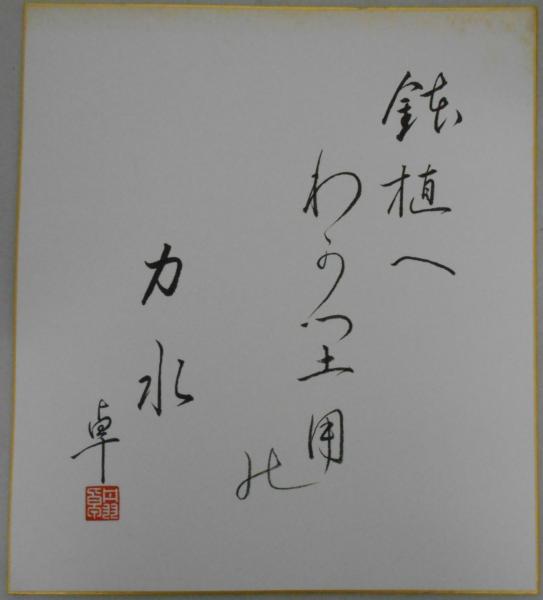 鉢植へ
わかつ土用
の
力水
卓